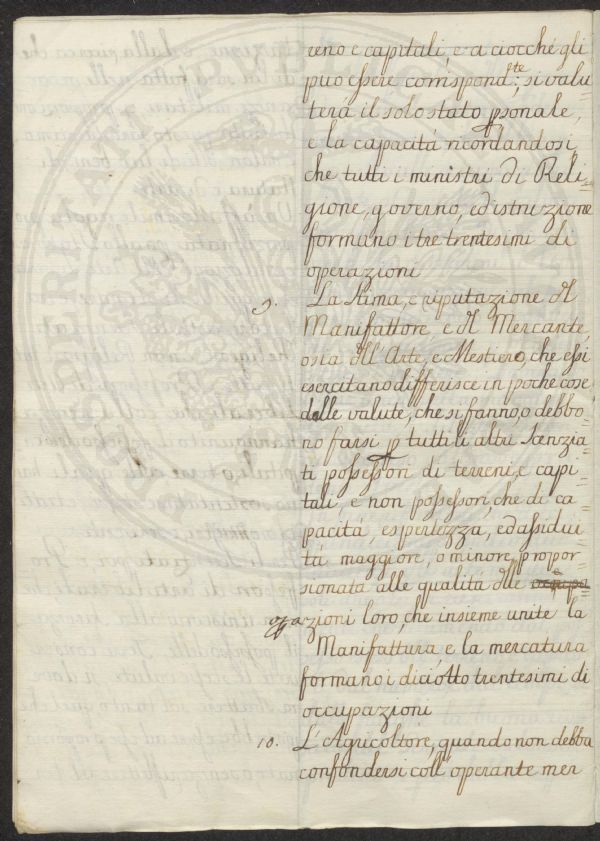 reno e capitali, e a ciocchè gli
può essere corrispond.te; si valu=
terá il solo stato psonale,
e la capacitá ricordandosi
che tutti i ministri di Reli=
gione, governo, ed istruzione
formano i tre trentesimi di
operazioni
9. La stima, e riputazione dl
Manifattore e dl Mercante,
osia dll'Arte, e Mestiero, che essi
esercitano differisce in poche cose
dalle valute, che si fanno, o debbo=
no farsi p tutti li altri scenzia=
ti possessori di terreni, e capi=
tali, e non possessori, che di ca=
pacitá, espertezza, ed assidui=
tá maggiore, o minore propor=
sionata alle qualitá dlle
opazioni loro, che insieme unite la
Manifattura, e la mercatura
formano i diciotto trentesimi di
occupazioni
10. L'Agricoltore, quando non debba
confondersi coll'operante mer